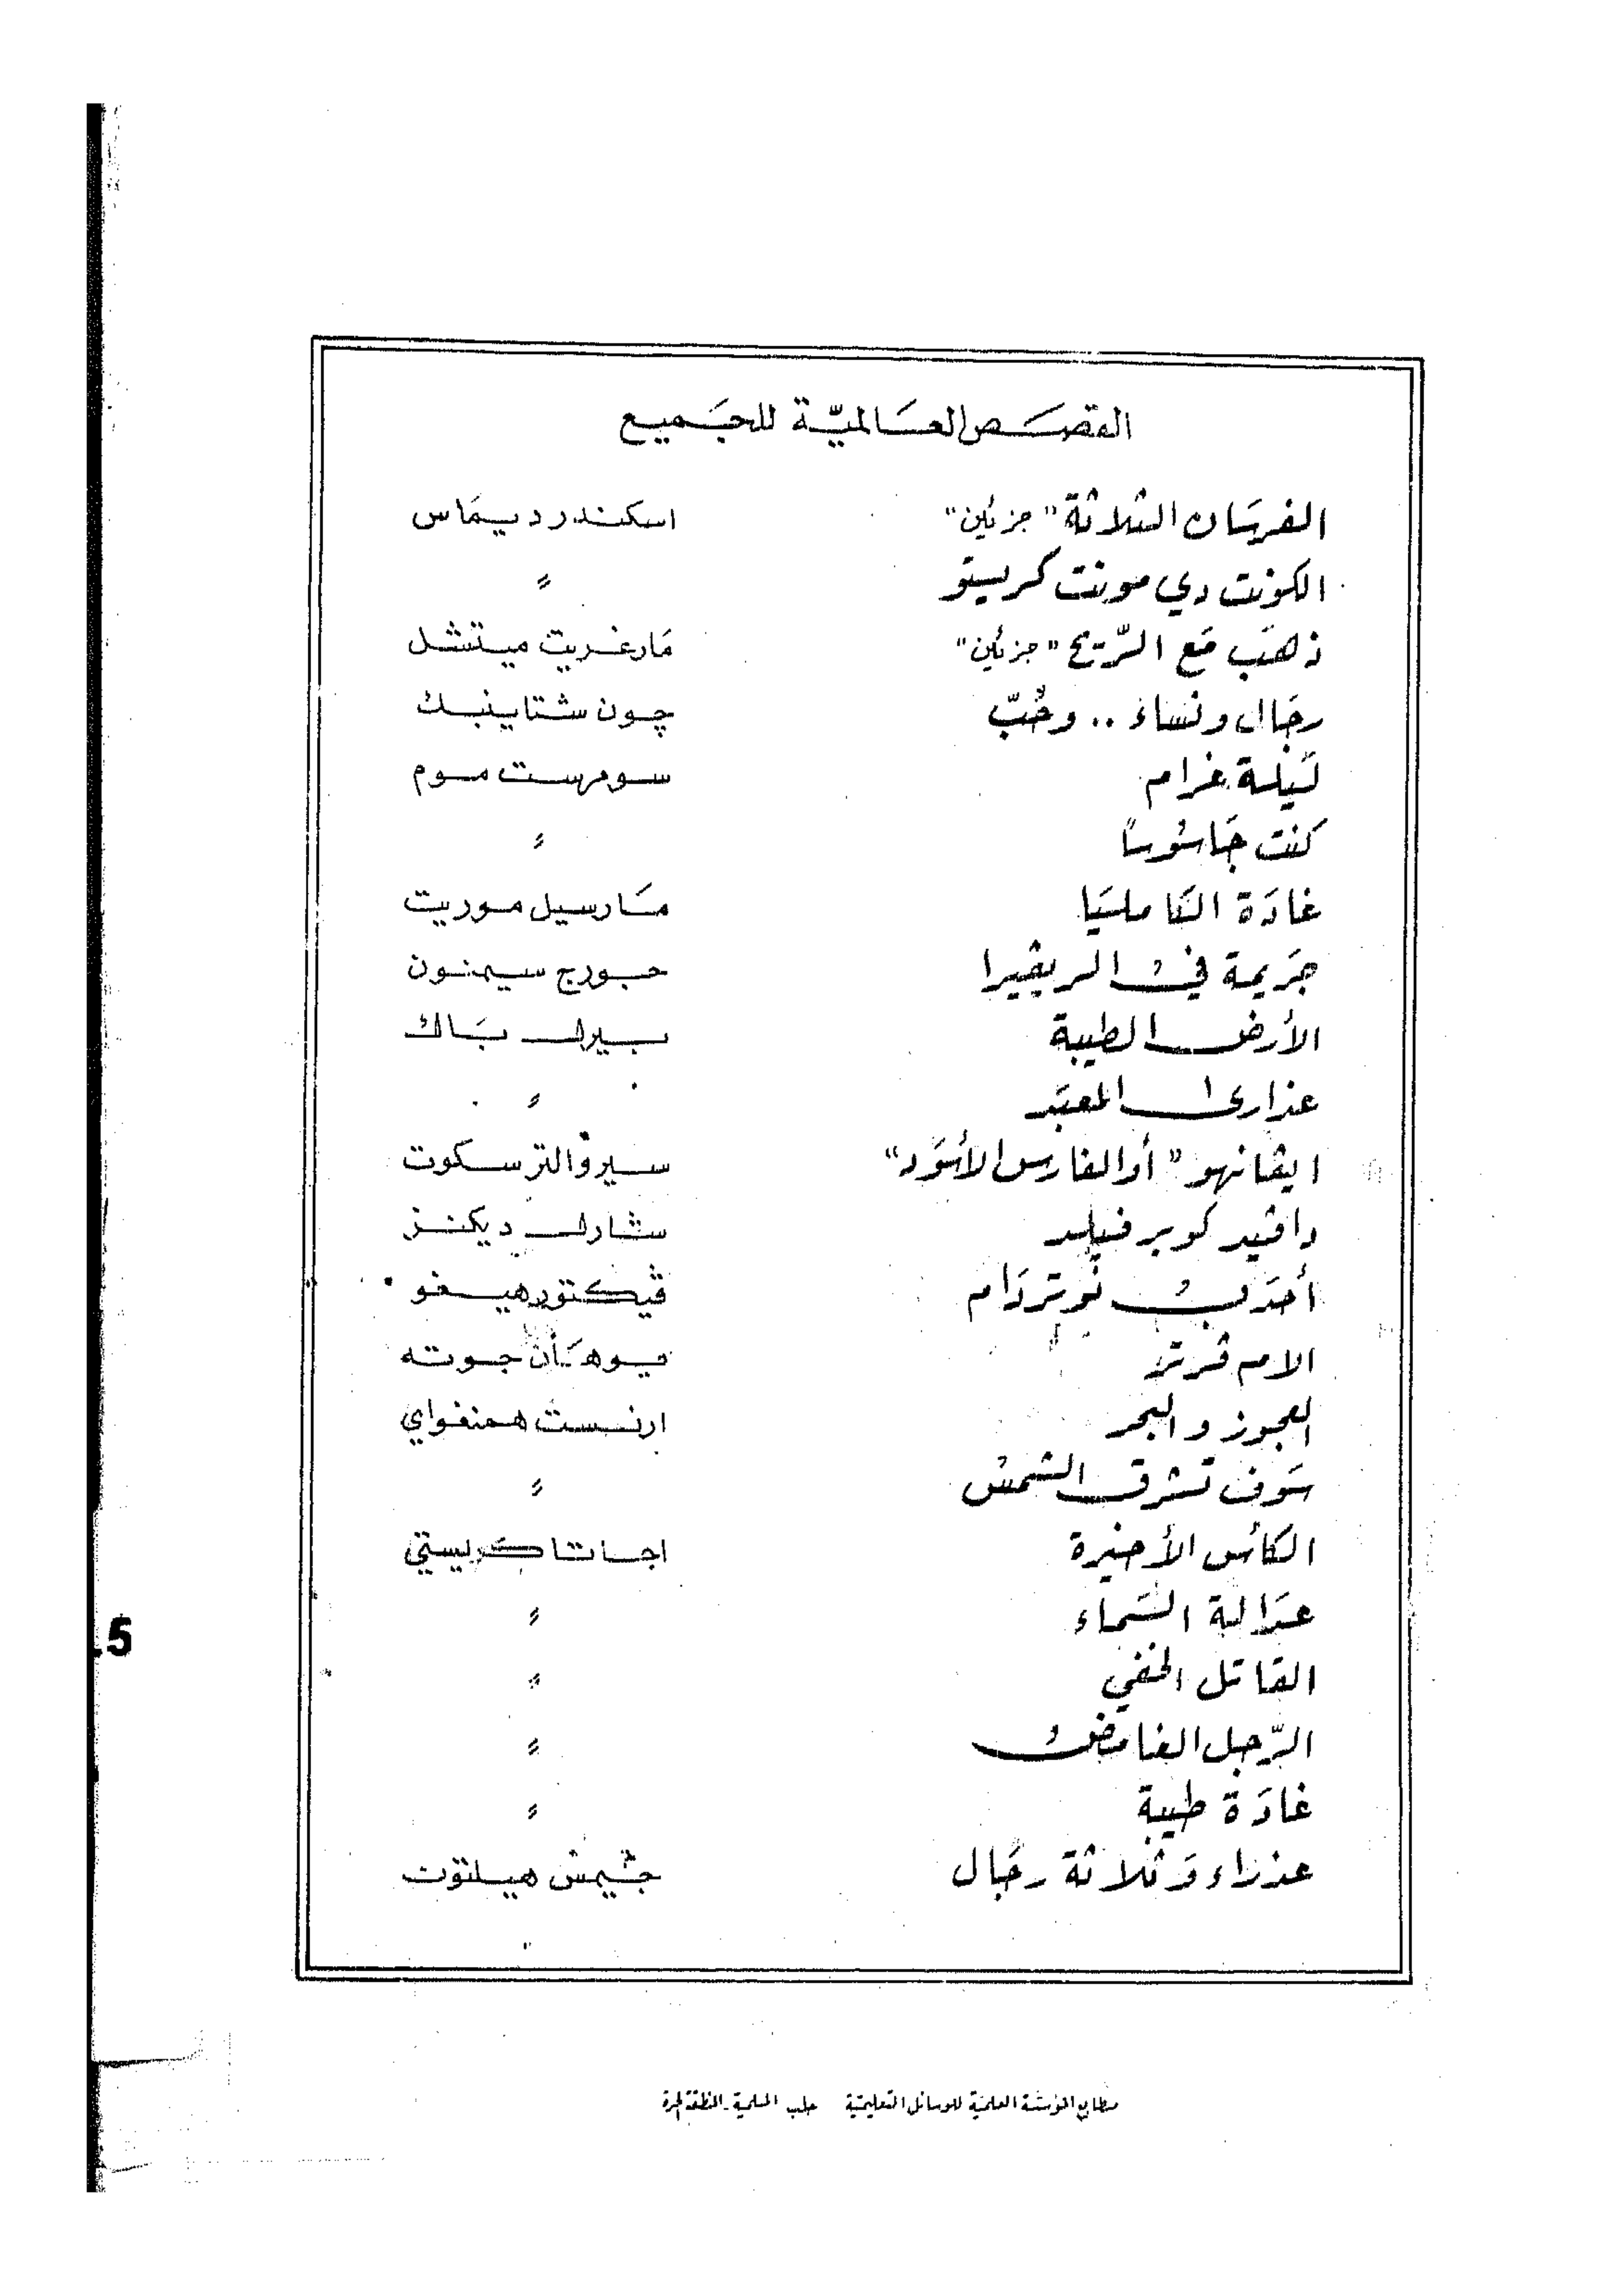 القصص العالميّة للجميع
الفرسَان الثلاثة "جزئين" اسكندر ديمَاس
الكونت دي مونت كريستو "
ذهَب مَع الرّيح "جزئين" مَارغريت ميتشل
رجَال ونساء .. وحُبّ چون شتاينبك
ليَلة غرام سومرست موم
كنت جَاسُوسًا "
غادَة الكاميليَا مَارسيل موريت
جَريمة في الريڤيرا جورج سيمنون
الأرض الطيبة بيرل بَاك
عذارى المعبَد "
ايڤانهو "أو الفارس الأسوَد" سير ڤالتر سكوت
داڤيد كوبرفيلد شارل ديكنز
أحدَب نوتردَام ڤيكتور هيغو
الام ڤرتر يوهَان جوته
العجوز والبحر ارنست همنغواي
سَوف تشرق الشمس "
الكأس الأخيرة اجاثا كريستي
عدَالة السَماء "
القاتل الخفي "
الرّجل الغامض "
غادَة طيبة "
عذراء وَثلاثة رجَال جيمس هيلتون
5
مطابع المؤسسَّة العلميَة للوسائل التعليميَة حلب المسلمية - المنطقة الحرة